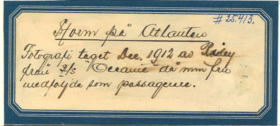 # 25.413.
Storm på Atlanten
Fotografi taget Dec. 1912 av
från S/S "Oceanic" då min fru
medföljde som passagerare.